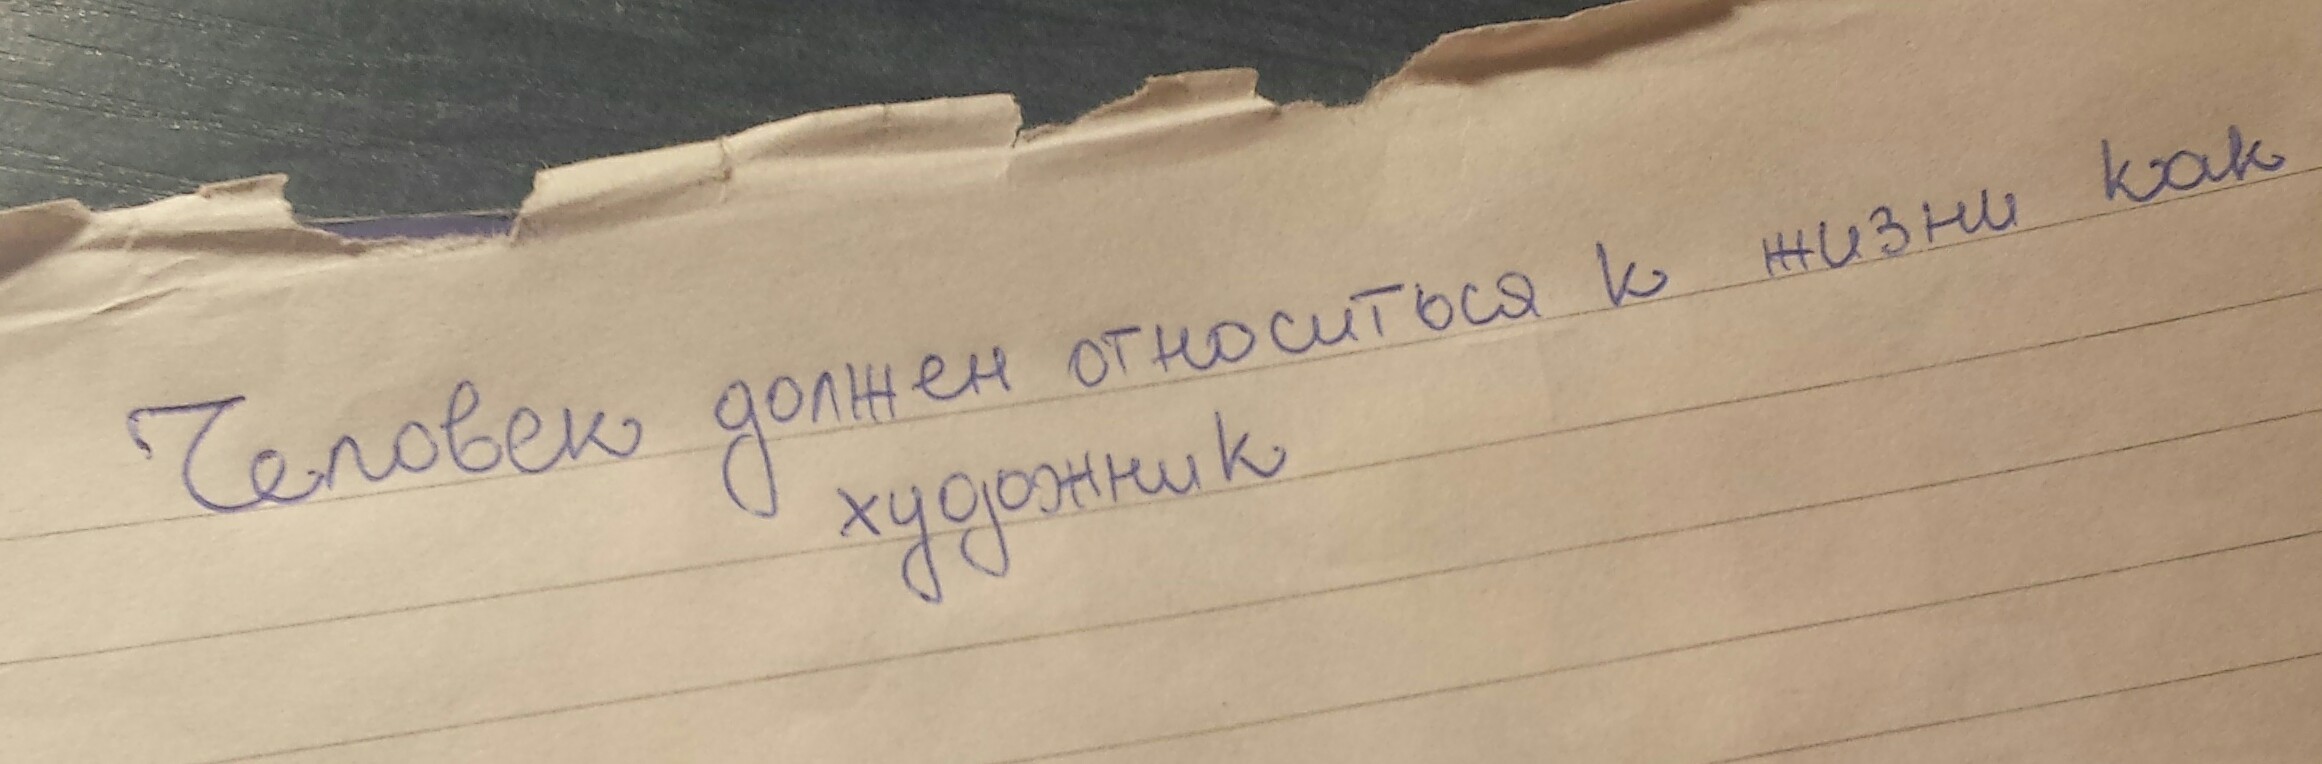 Человек должен относиться к жизни как
художник